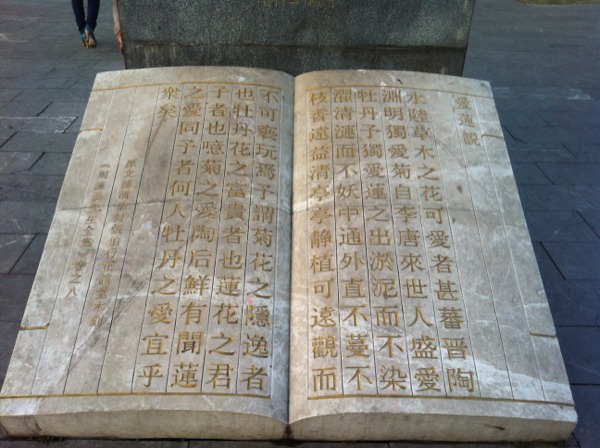 愛蓮說
水陸草木之花可愛者甚蕃晉陶
淵明獨愛菊自李唐來世人盛愛
牡丹予獨愛蓮之出淤泥而不染
濯清漣而不妖中通外直不蔓不
枝香遠益清亭亭静植可遠觀而
不可褻玩焉予謂菊花之隱逸者
也牡丹花之富貴者也蓮花之君
子者也噫菊之愛陶后鮮有聞蓮
之愛同予者何人牡丹之愛宜乎
眾矣
原文據清
《周濂溪先生全集》卷之八